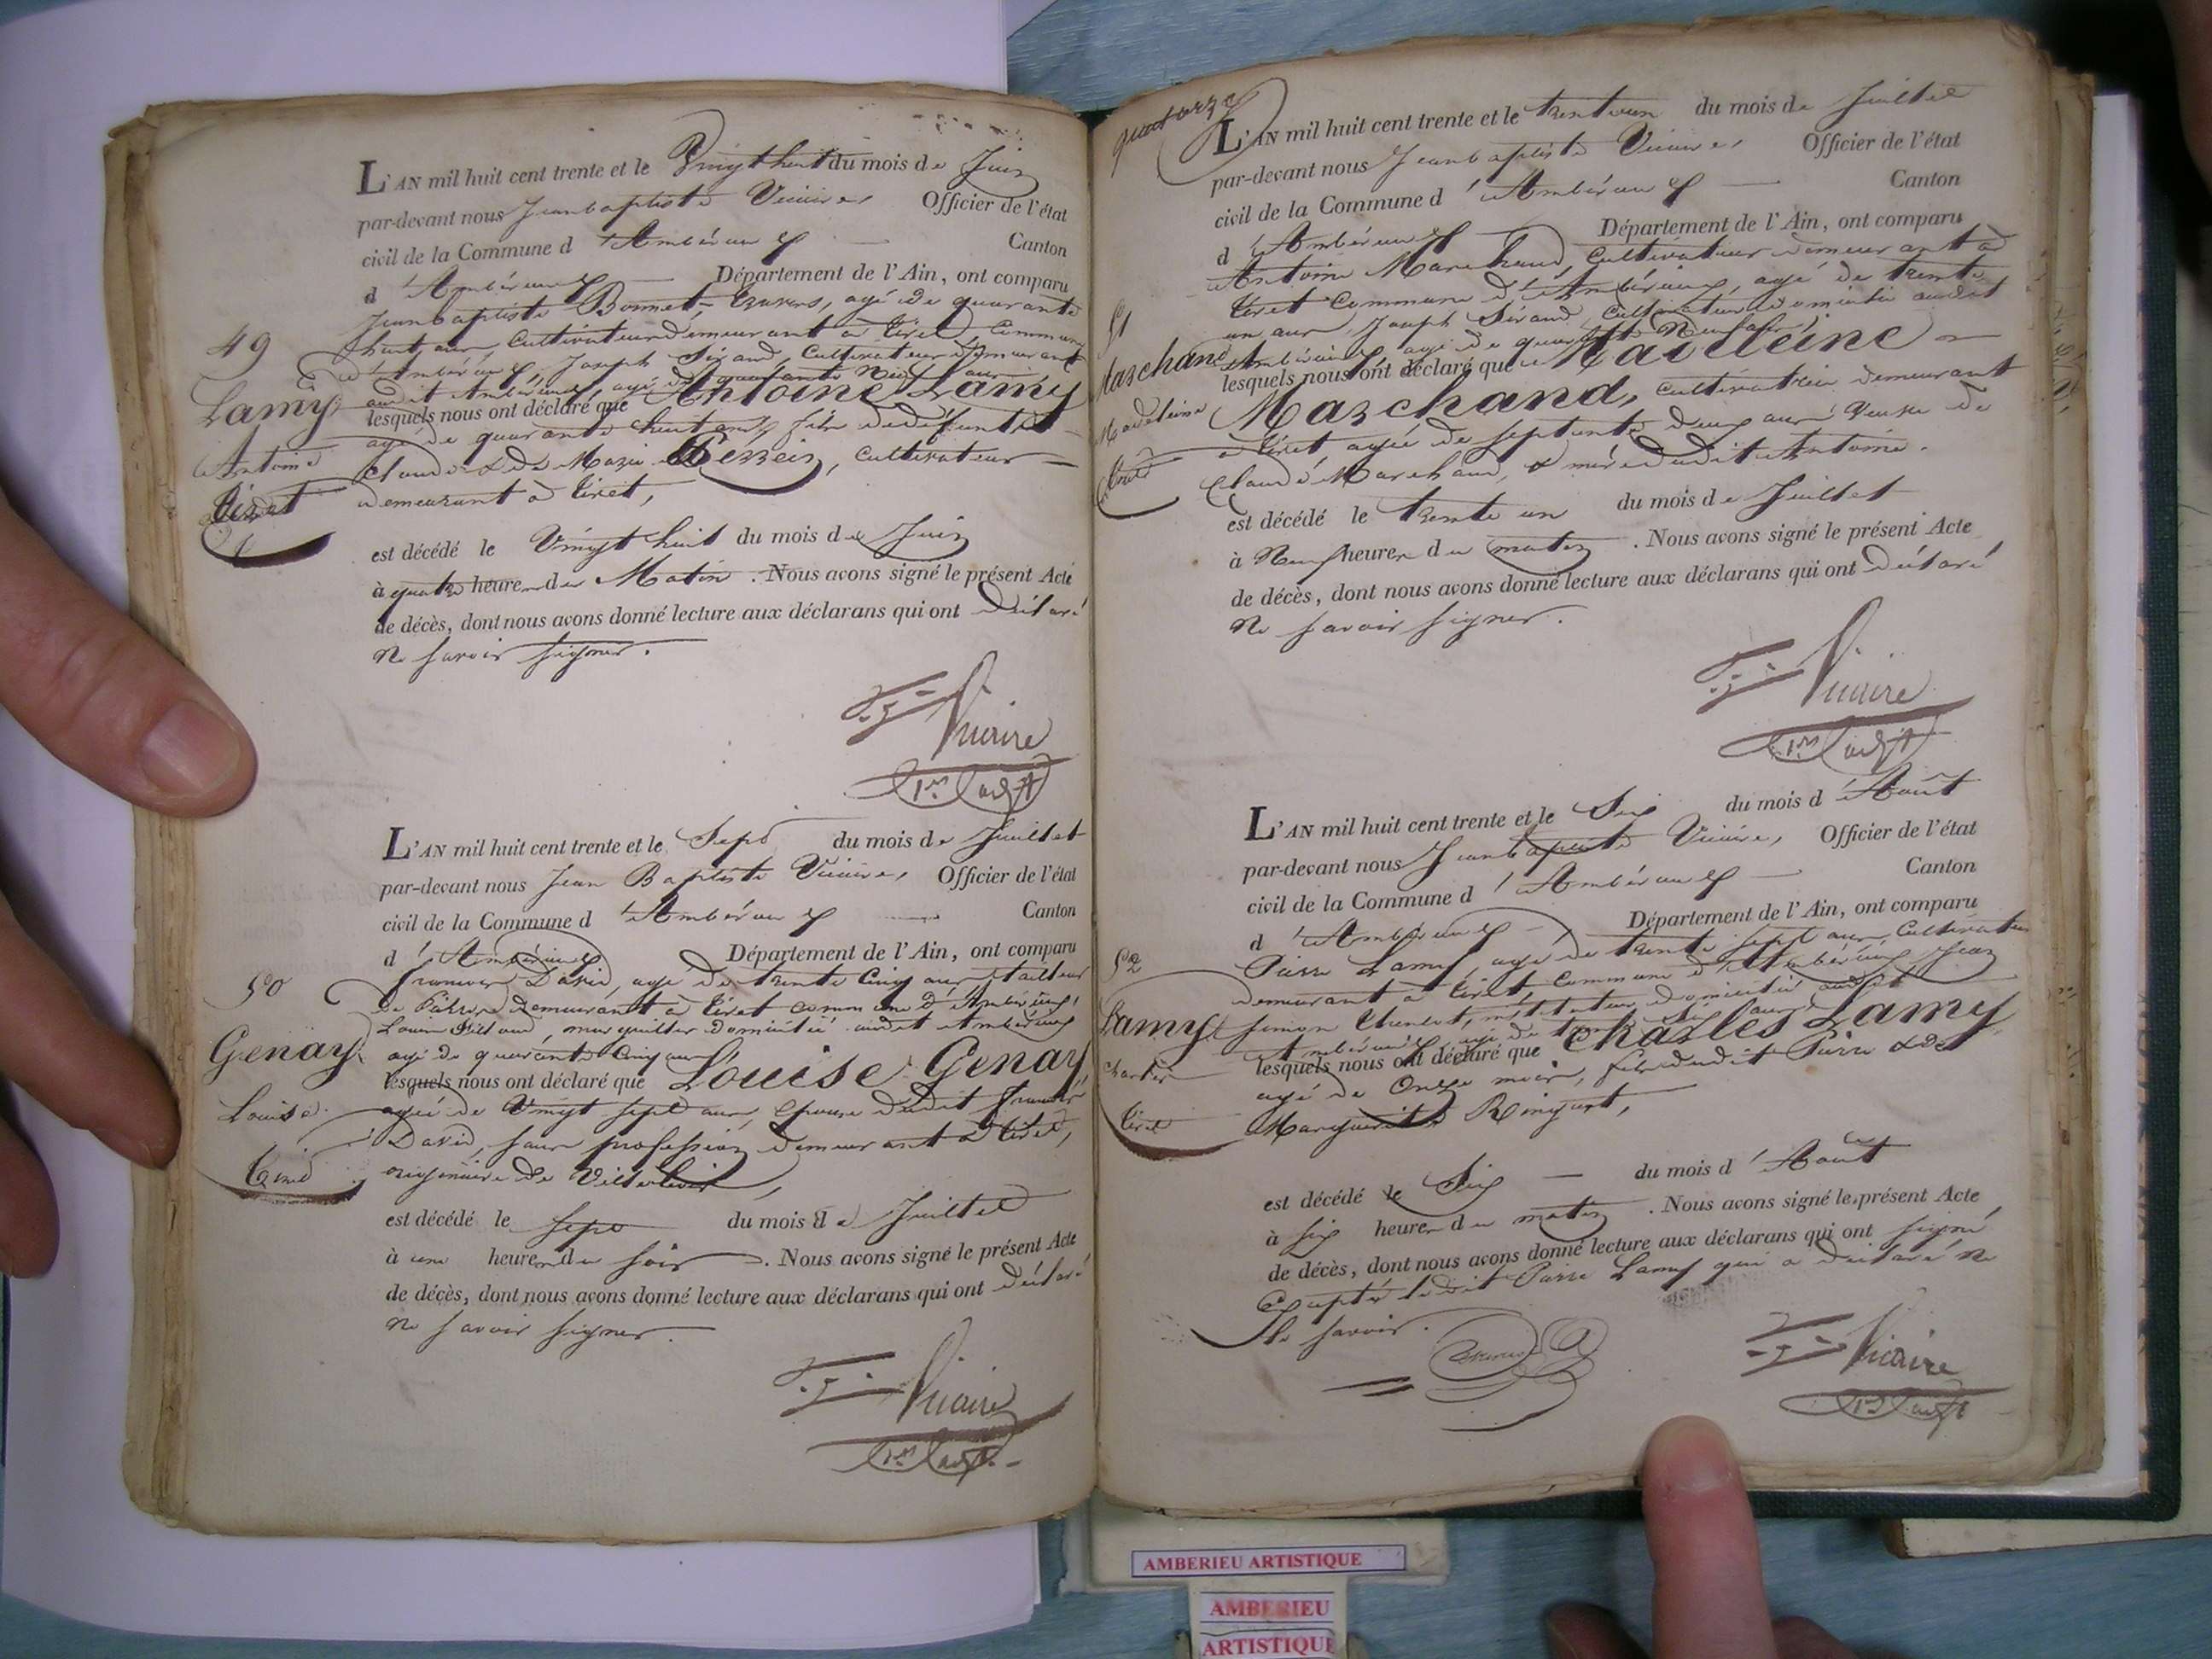 L'AN mil huit cent trente et le Vingt huit du mois de Juin
par-devant nous Jean baptiste Vicaire, Officier de l'état
civil de la Commune d'Ambérieux Canton
d'Ambérieux Département de l'Ain, ont comparu
Jean baptiste Bonnet- agé de quarante
huit ans, Cultivateur demeurant à Tiret, Commune
d'Ambérieux, Joseph Sirand, Cultivateur demeurant
audit Ambérieux, agé de quarante Neuf ans
lesquels nous ont déclaré que Antoine Lamy
agé de quarante huit ans, fils de défunt
Claude & de Marie cultivateur
demeurant à Tiret,
49
Lamy
Antoine
Tiret
est décédé le Vingt huit du mois de Juin
à quatre heures du Matin. Nous avons signé le présent Acte
de décès, dont nous avons donné lecture aux déclarans qui ont déclaré
ne savoir signer.
Vicaire
1er adjt
L'AN mil huit cent trente et le Sept du mois de Juillet
par-devant nous Jean Baptiste Vicaire, Officier de l'état
civil de la Commune d'Ambérieux Canton
d'Ambérieux Département de l'Ain, ont comparu
François David, agé de trente cinq ans, tailleur
de Pierre demeurant à Tiret commune d'Ambérieux,
Louis marguillier domicilié audit Ambérieux
agé de quarante cinq ans
lesquels nous ont déclaré que Louise Genay
agée de Vingt sept ans, épouse dudit François
David, sans profession demeurant à Tiret,
originaire de Villebois,
50
Genay
Louise
Tiret
est décédé le sept du mois de Juillet
à une heure du soir. Nous avons signé le présent Acte
de décès, dont nous avons donné lecture aux déclarans qui ont déclaré
ne savoir signer.
Vicaire
1er adjt
quatorze
L'AN mil huit cent trente et le trente un du mois de Juillet
par-devant nous Jean baptiste Vicaire, Officier de l'état
civil de la Commune d'Ambérieux Canton
d'Ambérieux Département de l'Ain, ont comparu
Antoine Marchand, Cultivateur demeurant à
Tiret Commune d'Ambérieux, agé de trente
un ans, Joseph Sirand, Cultivateur domicilié audit
Ambérieux, agé de quarante Neuf ans,
lesquels nous ont déclaré que Madeleine
Marchand, cultivatrice demeurant
à Tiret, agée de septante deux ans Veuve de
Claude Marchand, & mère dudit Antoine.
51
Marchand
Madeleine
Tiret
est décédé le trente un du mois de Juillet
à Neuf heures du matin. Nous avons signé le présent Acte
de décès, dont nous avons donné lecture aux déclarans qui ont déclaré
ne savoir signer.
Vicaire
1er adjt
L'AN mil huit cent trente et le Six du mois d'Août
par-devant nous Jean baptiste Vicaire, Officier de l'état
civil de la Commune d'Ambérieux Canton
d'Ambérieux Département de l'Ain, ont comparu
Pierre Lamy, agé de trente sept ans, Cultivateur
demeurant à Tiret, Commune d'Ambérieux, Jean
Simon instituteur domicilié audit
Ambérieux, agé de trente six ans,
lesquels nous ont déclaré que Charles Lamy
agé de Onze mois, fils dudit Pierre & de
Marguerite Ringuet,
52
Lamy
Charles
Tiret
est décédé le Six du mois d'Août
à six heures du matin. Nous avons signé le présent Acte
de décès, dont nous avons donné lecture aux déclarans qui ont signé
Excepté ledit Pierre Lamy qui a déclaré ne
le savoir.
Vicaire
1er adjt
AMBERIEU ARTISTIQUE
AMBERIEU
ARTISTIQUE